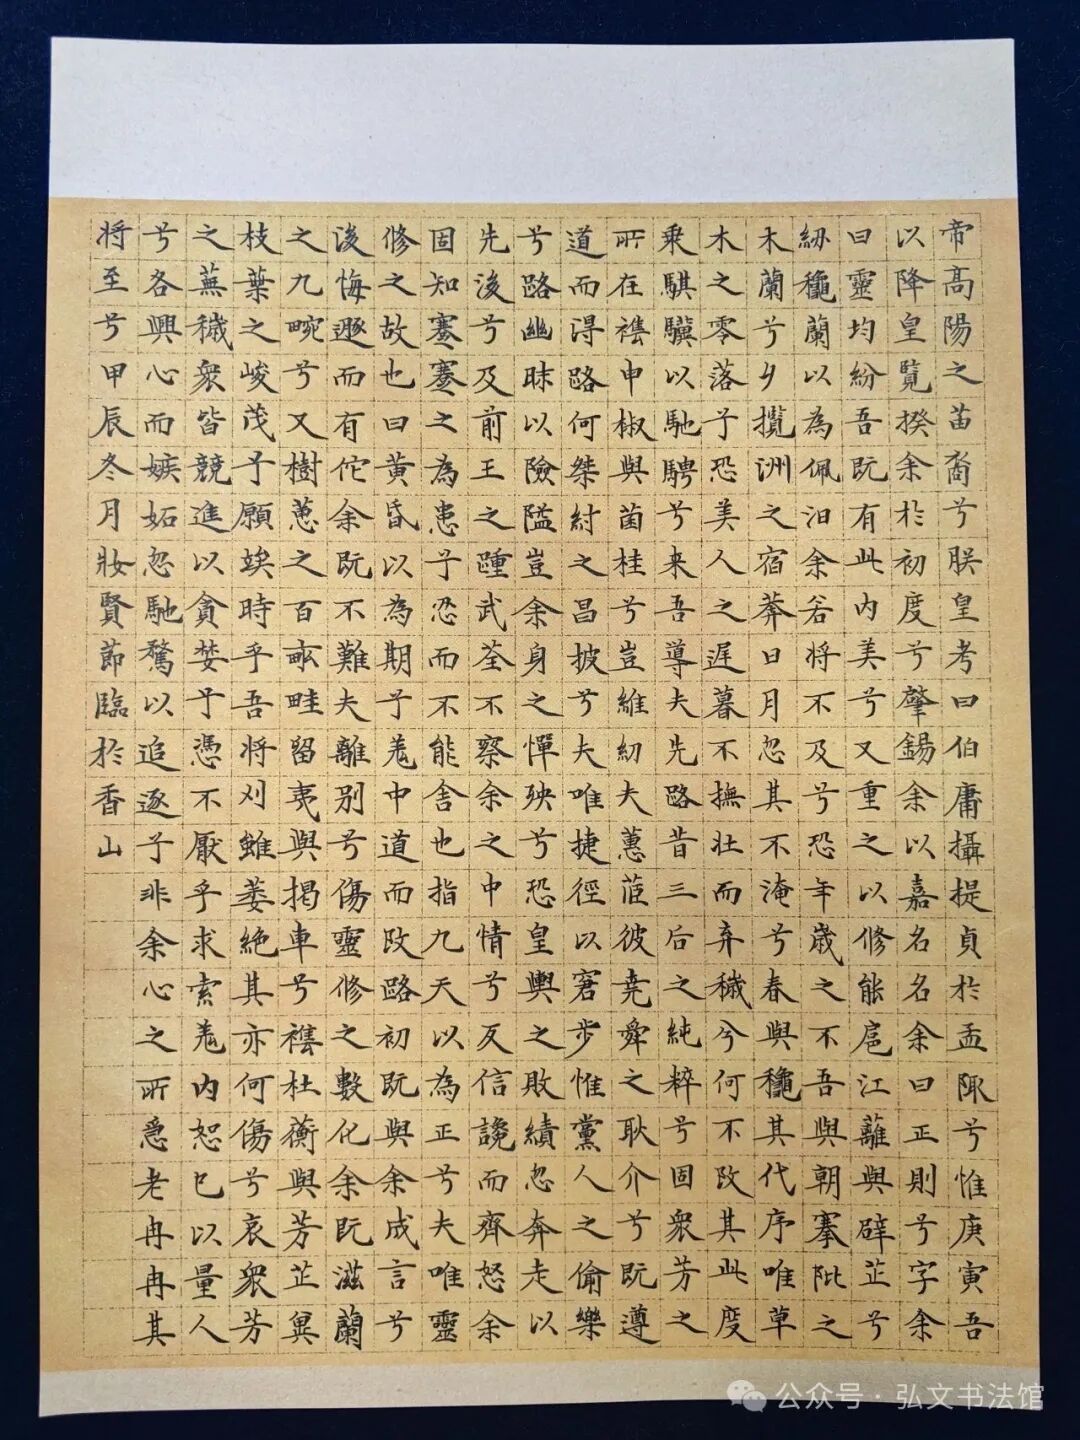 帝高陽之苗裔兮朕皇考曰伯庸攝提貞於孟陬兮惟庚寅吾
以降皇覽揆余於初度兮肇錫余以嘉名名余曰正則兮字余
曰靈均紛吾既有此內美兮又重之以修能扈江蘺與辟芷兮
紉龝蘭以為佩汩余若將不及兮恐年歲之不吾與朝搴阰之
木蘭兮夕攬洲之宿莽日月忽其不淹兮春與龝其代序唯草
木之零落兮恐美人之遲暮不撫壯而弃穢兮何不改其此度
乗騏驥以馳騁兮来吾導夫先路昔三后之純粹兮固衆芳之
所在襍申椒與菌桂兮豈維紉夫蕙茝彼堯舜之耿介兮既遵
道而得路何桀紂之昌披兮夫唯捷徑以窘步惟黨人之偷樂
兮路幽昧以險隘豈余身之憚殃兮恐皇輿之敗績忽奔走以
先後兮及前王之踵武荃不察余之中情兮反信讒而齊怒余
固知謇謇之為患兮忍而不能舍也指九天以為正兮夫唯靈
修之故也曰黃昏以為期兮羌中道而改路初既與余成言兮
後悔遯而有佗余既不難夫離別兮傷靈修之數化余既滋蘭
之九畹兮又樹蕙之百畝畦留夷與揭車兮襍杜蘅與芳芷冀
枝葉之峻茂兮願竢時乎吾將刈雖萎絕其亦何傷兮哀衆芳
之蕪穢衆皆競進以貪婪兮憑不厭乎求索羌內恕己以量人
兮各興心而嫉妬忽馳騖以追逐兮非余心之所急老冉冉其
將至兮甲辰冬月妝賢節臨於香山
公众号·弘文书法馆